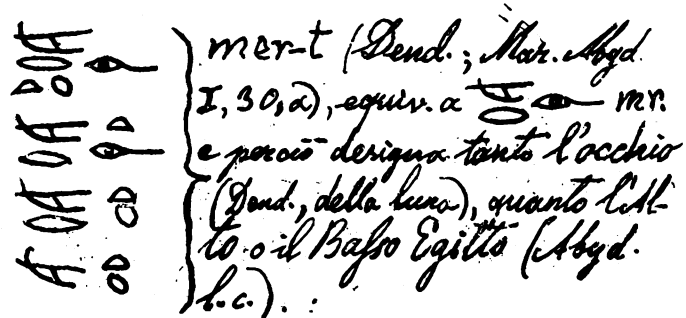 mer-t (Dend.; Mar. Abyd.
I, 30, a), equiv. a mr.
e perciò designa tanto l'occhio
(Dend., della luna), quanto l'Al-
to o il Basso Egitto (Abyd.
l.c.).